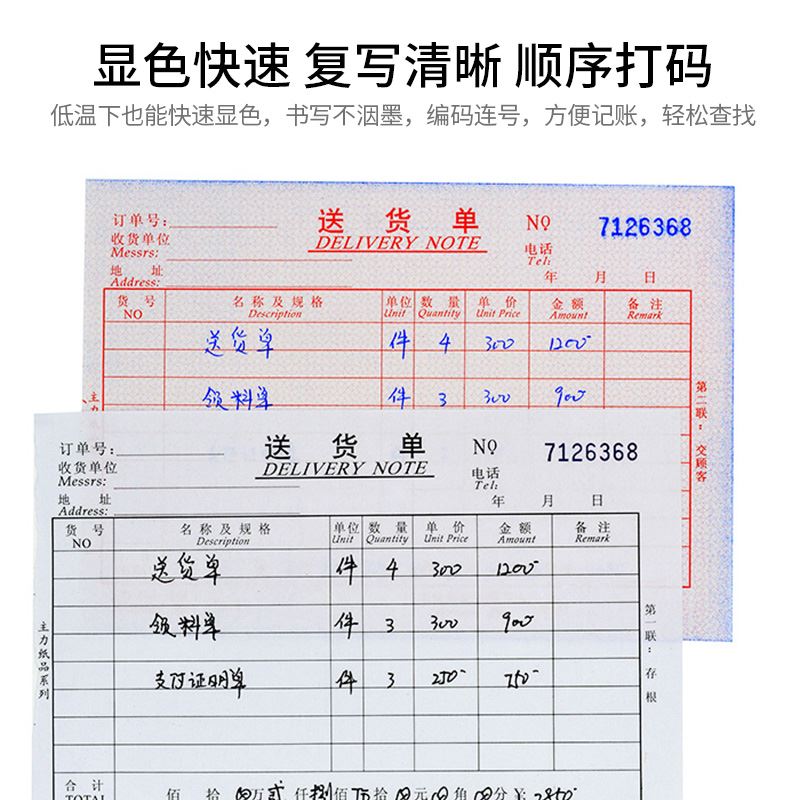 显色快速 复写清晰 顺序打码
低温下也能快速显色，书写不洇墨，编码连号，方便记账，轻松查找
订单号: 送 货 单 NO 7126368
收货单位 DELIVERY NOTE 电话
Messrs: Tel:
地 址 年 月 日
Address:
货 号 名 称 及 规 格 单位 数 量 单 价 金 额 备 注
NO Description Unit Quantity Unit Price Amount Remark
送货单 件 4 300 1200-
领料单 件 3 300 900-
主力
第二联：交顾客
订单号: 送 货 单 NO 7126368
收货单位 DELIVERY NOTE 电话
Messrs: Tel:
地 址 年 月 日
Address:
货 号 名 称 及 规 格 单位 数 量 单 价 金 额 备 注
NO Description Unit Quantity Unit Price Amount Remark
送货单 件 4 300 1200-
领料单 件 3 300 900-
支付证明单 件 3 250- 750-
主力纸品系列
第一联：存根
合 计 佰 拾 万 贰 仟 捌 佰 拾 元 角 分 ¥ 2850-
TOTAL